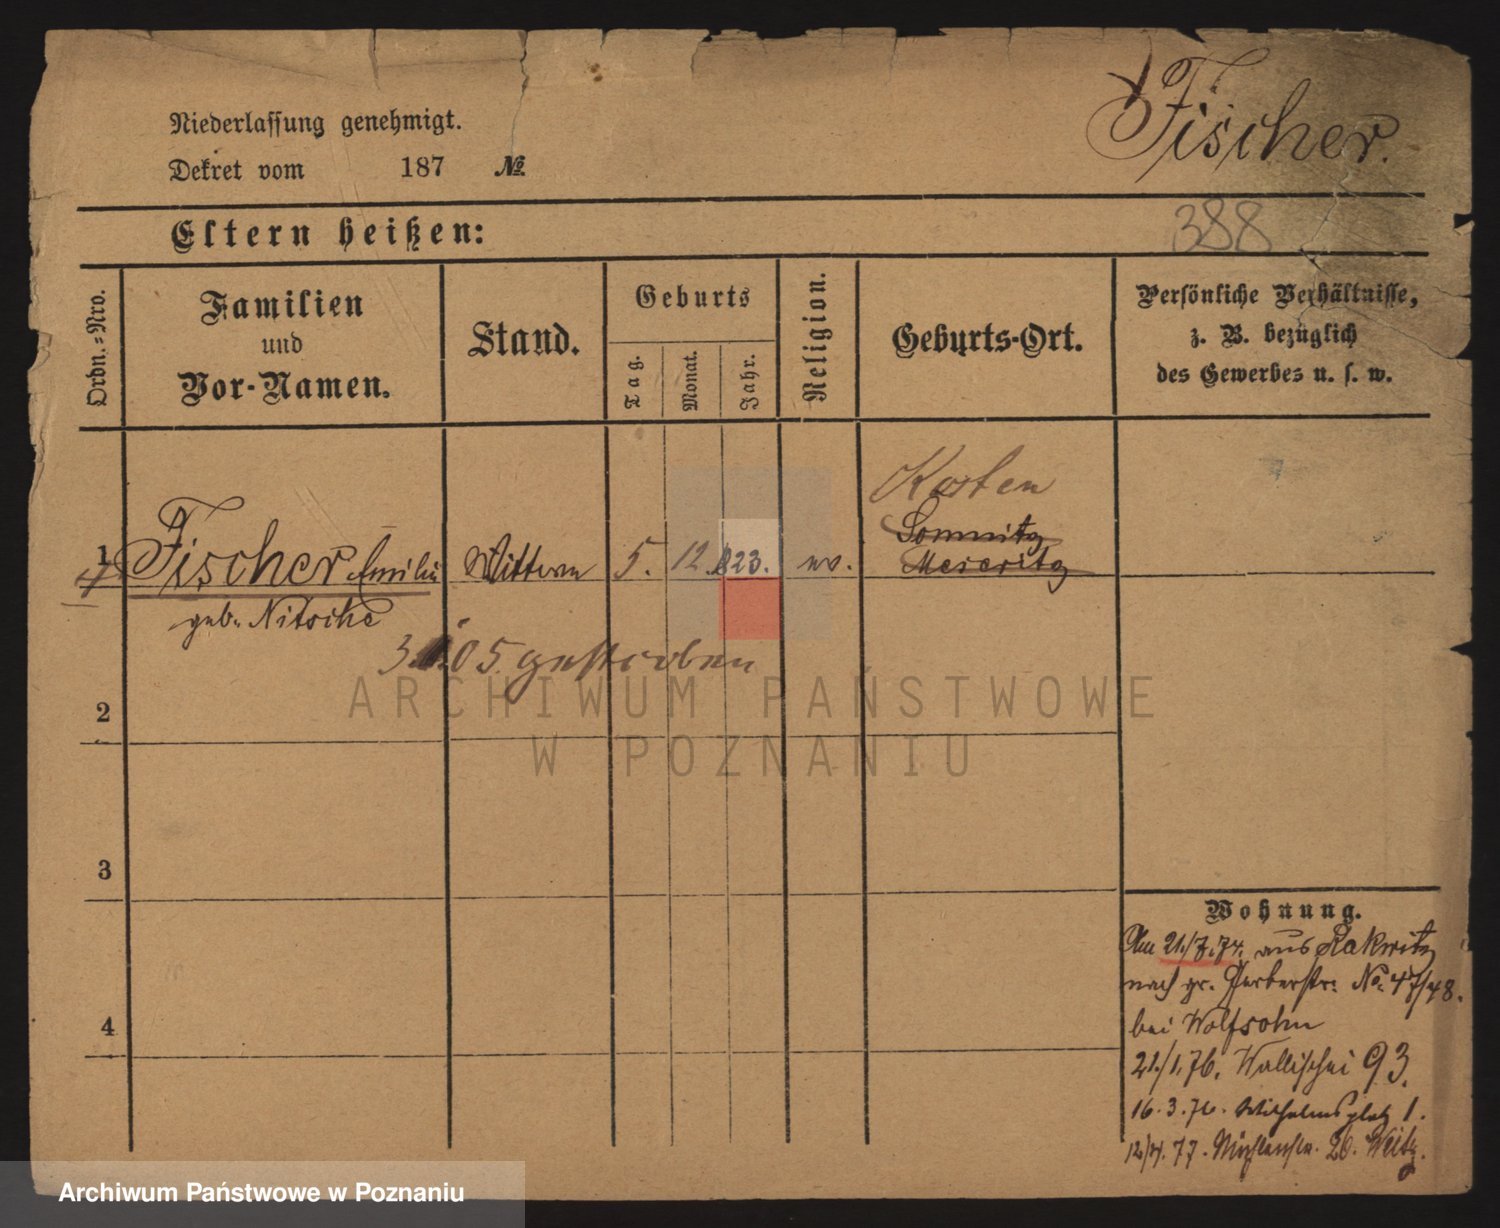 Fischer.
Niederlassung genehmigt.
Dekret vom 187 №
388
Eltern heißen:
Ordn.=Nro.
Familien
und
Vor-Namen.
Stand.
Geburts
Tag.
Monat.
Jahr.
Religion.
Geburts-Ort.
Persönliche Verhältnisse,
z. B. bezüglich
des Gewerbes u. s. w.
Kosten
Somnitz
Meseritz
1 Fischer Emilie Wittwe 5. 12. 823. ev.
geb. Nitsche
3. 05. gestorben
2
3
4
Wohnung.
Am 21./7.74. aus Rakwitz
nach gr. Gerberstr: No: 47/48.
bei Wolfsohn
21./1.76. Wallischei 93.
16.3.76. Wilhelmsplatz 1.
12/4.77. Mühlenstr. 20. Weitz.
ARCHIWUM PAŃSTWOWE
W POZNANIU
Archiwum Państwowe w Poznaniu